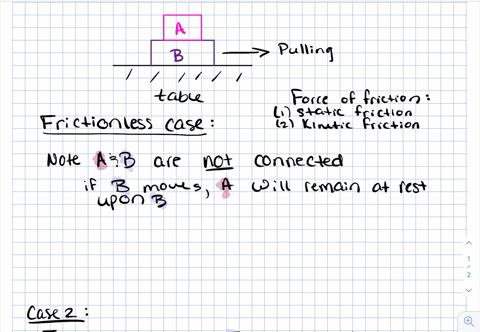 A
B
Pulling
table
Force of friction:
(1) static friction
(2) Kinetic Friction
Frictionless case:
Note A & B are not connected
if B moves, A will remain at rest
upon B
Case 2:
1
2